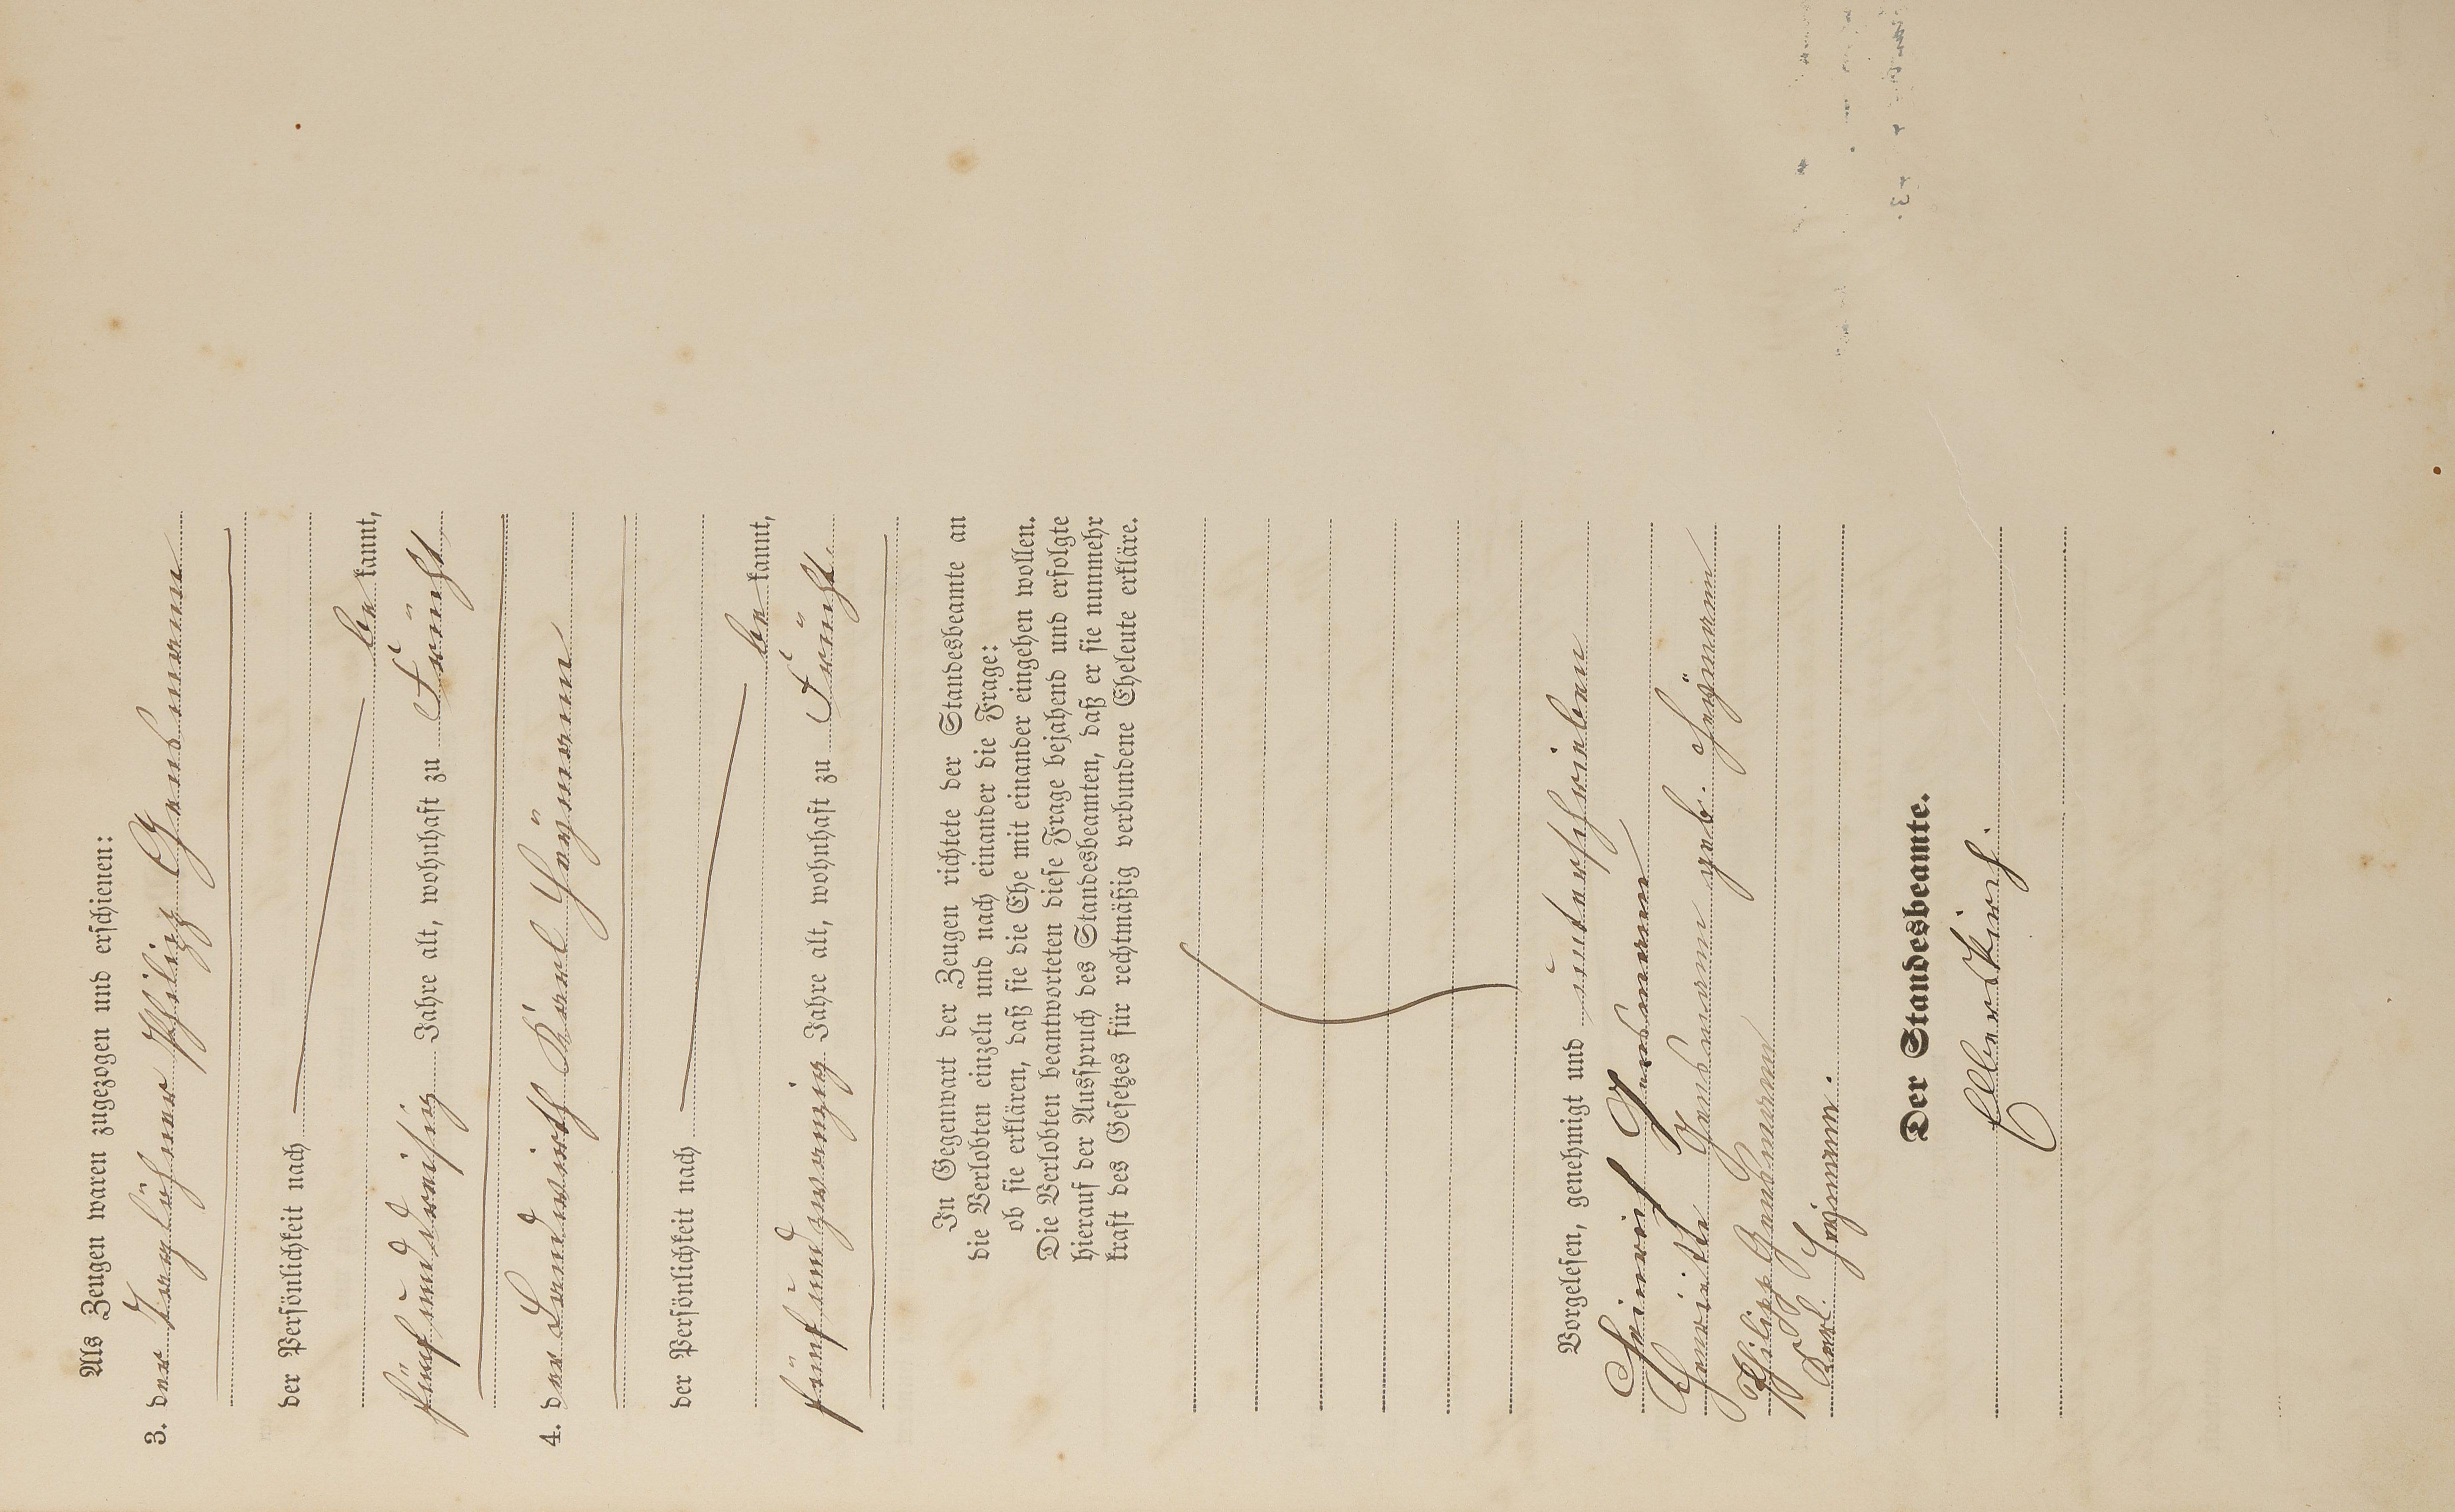 Als Zeugen waren zugezogen und erschienen:
3. der Taglöhner Philipp Gensmann
der Persönlichkeit nach
be kannt,
fünfunddreißig Jahre alt, wohnhaft zu Frücht
4. der Landwirth Karl Heymann
der Persönlichkeit nach
be kannt,
fünfundzwanzig Jahre alt, wohnhaft zu Frücht.
In Gegenwart der Zeugen richtete der Standesbeamte an
die Verlobten einzeln und nach einander die Frage:
ob sie erklären, daß sie die Ehe mit einander eingehen wollen.
Die Verlobten beantworteten diese Frage bejahend und erfolgte
hierauf der Ausspruch des Standesbeamten, daß er sie nunmehr
kraft des Gesetzes für rechtmäßig verbundene Eheleute erkläre.
Vorgelesen, genehmigt und unterschrieben
Heinrich Gensmann
Henriette Gensmann geb. Heymann
Philipp Gensmann
Karl Heymann.
Der Standesbeamte.